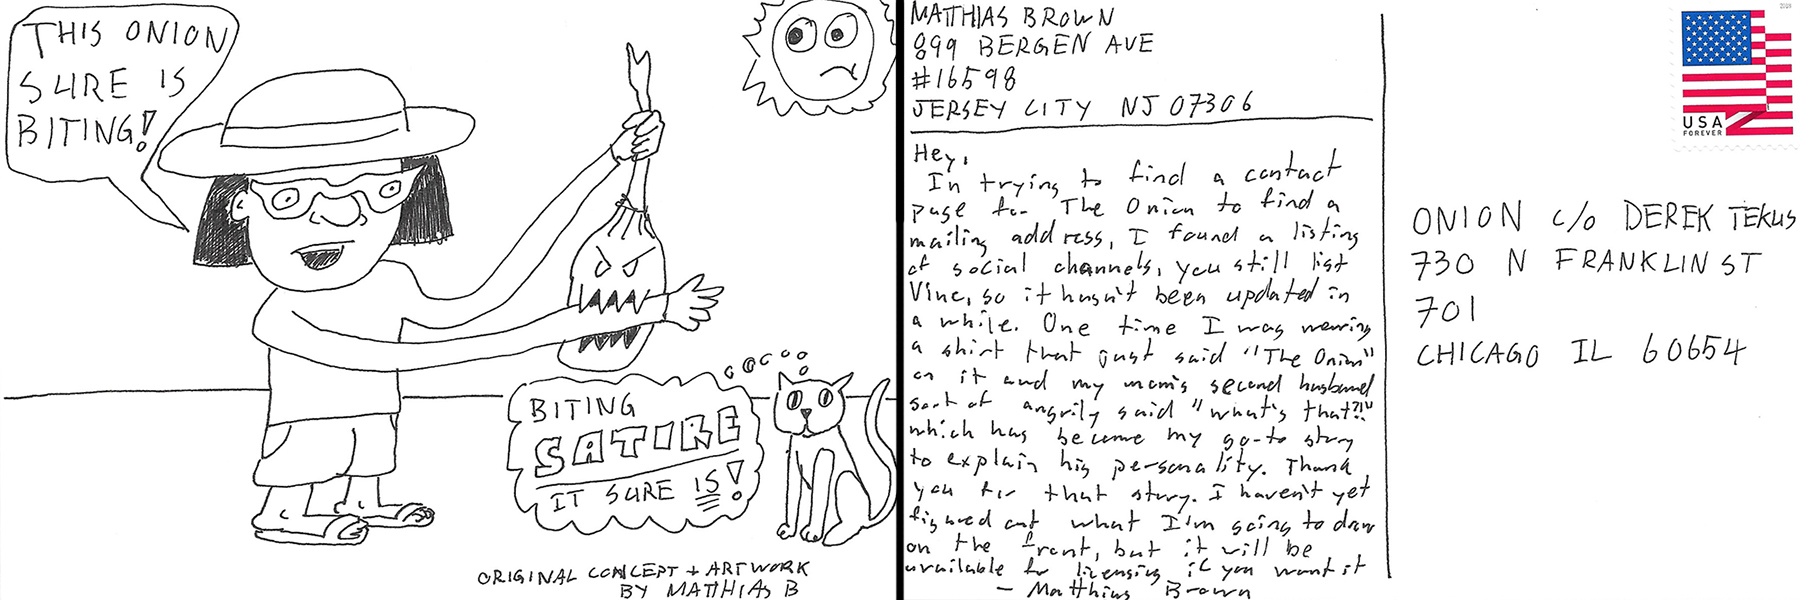 THIS ONION
SURE IS
BITING!
BITING
SATIRE
IT SURE IS!
ORIGINAL CONCEPT + ARTWORK
BY MATTHIAS B
MATTHIAS BROWN
899 BERGEN AVE
#16598
JERSEY CITY NJ 07306
Hey,
In trying to find a contact
page for The Onion to find a
mailing address, I found a listing
of social channels, you still list
Vine, so it hasn't been updated in
a while. One time I was wearing
a shirt that just said "The Onion"
on it and my mom's second husband
sort of angrily said "what's that?!"
which has become my go-to story
to explain his personality. Thank
you for that story. I haven't yet
figured out what I'm going to draw
on the front, but it will be
available for licensing if you want it
- Matthias Brown
2019
USA
FOREVER
ONION c/o DEREK TEKUS
730 N FRANKLIN ST
701
CHICAGO IL 60654